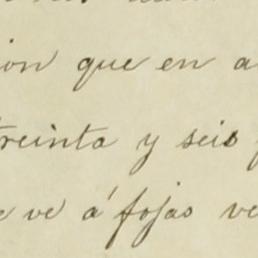 ion que en a
treinta y seis
e ve á fojas ve